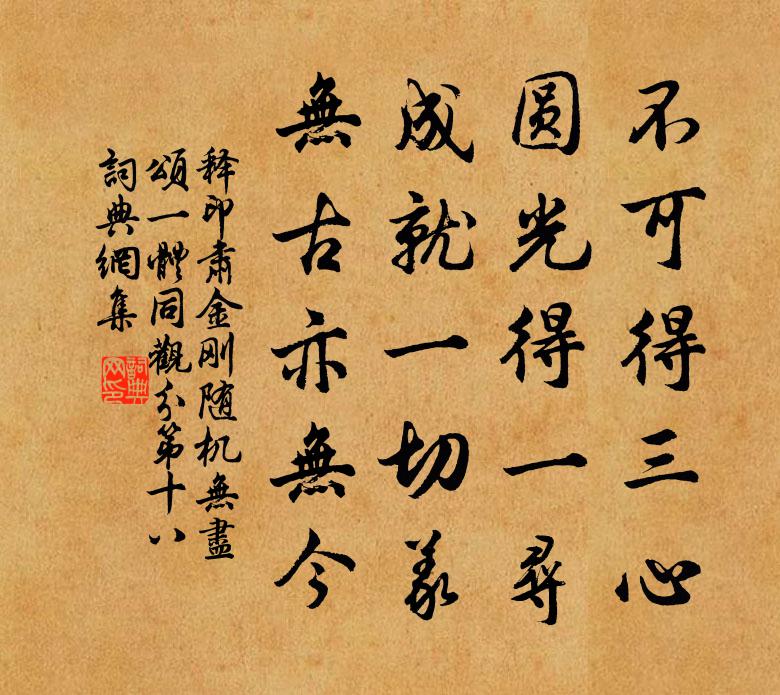 不可得三心
圆光得一尋
成就一切義
無古亦無今
释印肃金刚随机無盡
頌一體同觀分第十八
詞典網集
詞典网印